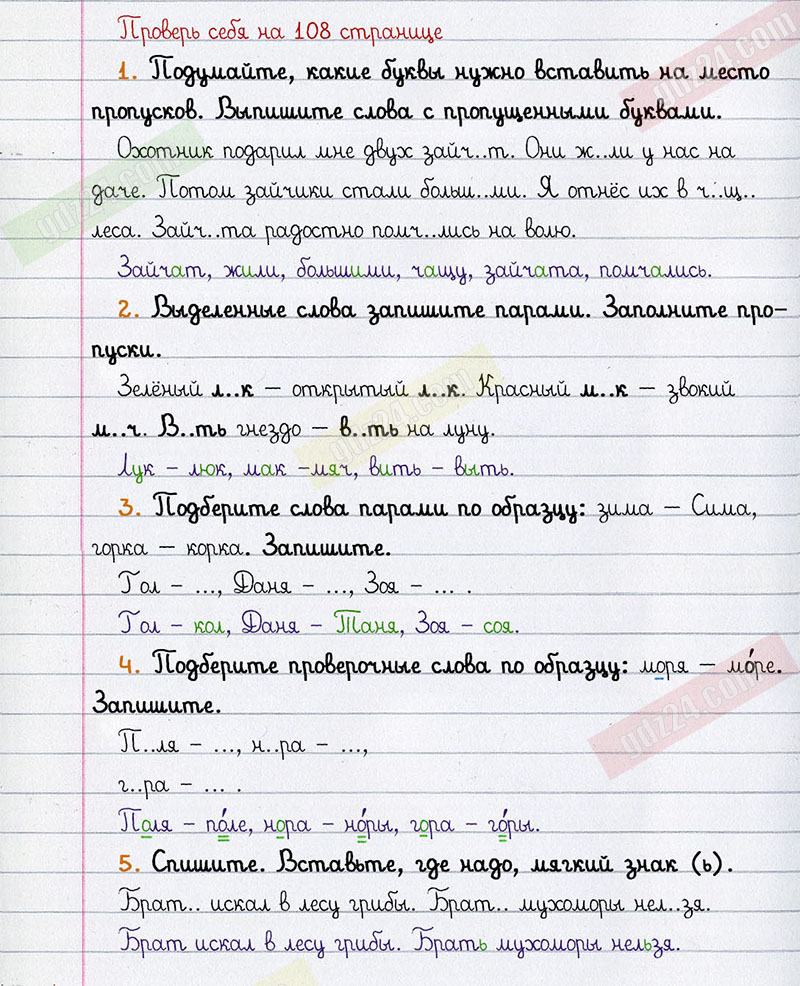 Проверь себя на 108 странице
1. Подумайте, какие буквы нужно вставить на место
пропусков. Выпишите слова с пропущенными буквами.
Охотник подарил мне двух зайч..т. Они ж..ли у нас на
даче. Потом зайчики стали больш..ми. Я отнёс их в ч..щ..
леса. Зайч..та радостно помч..лись на волю.
Зайчат, жили, большими, чащу, зайчата, помчались.
2. Выделенные слова запишите парами. Заполните про-
пуски.
Зелёный л..к – открытый л..к. Красный м..к – звокий
м..ч. В..ть гнездо – в..ть на луну.
Лук – люк, мак –мяч, вить – выть.
3. Подберите слова парами по образцу: зима – Сима,
горка – корка. Запишите.
Гол – ..., Даня – ..., Зоя – ... .
Гол – кол, Даня – Таня, Зоя – соя.
4. Подберите проверочные слова по образцу: моря – мо́ре.
Запишите.
П..ля – ..., н..ра – ...,
г..ра – ... .
Поля – по́ле, нора – но́ры, гора – го́ры.
5. Спишите. Вставьте, где надо, мягкий знак (ь).
Брат.. искал в лесу грибы. Брат.. мухоморы нел..зя.
Брат искал в лесу грибы. Брать мухоморы нельзя.
gdz24.com
gdz24.com
gdz24.com
gdz24.com